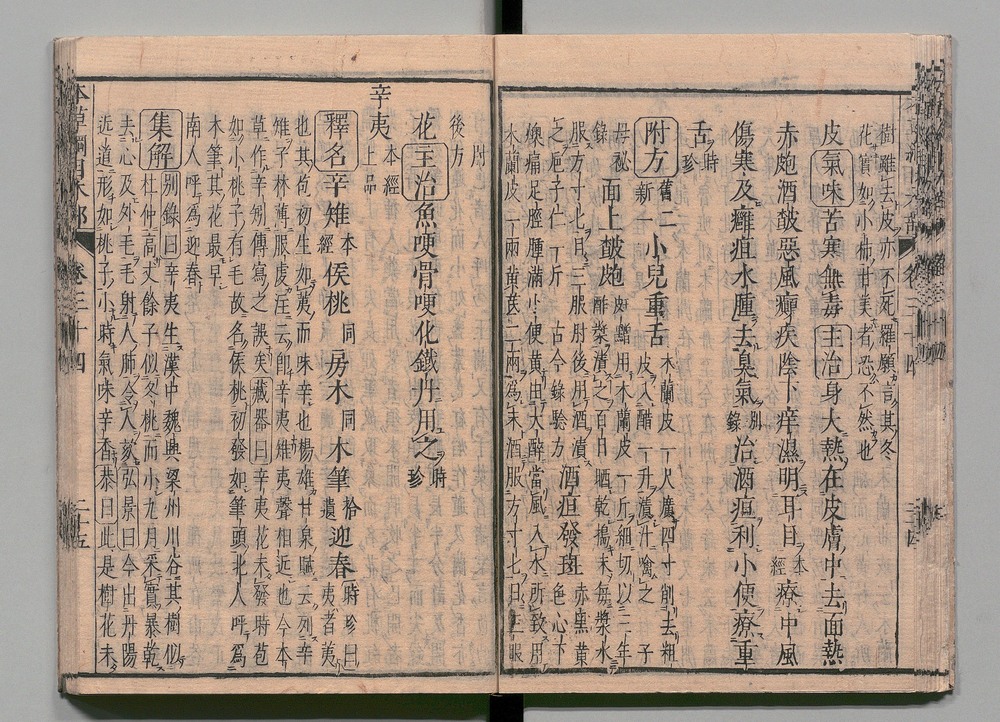 樹雖去皮亦不死羅願言其冬
花實如小柿甘美者恐不然也
皮氣味苦寒無毒主治身大熱在皮膚中去面熱
赤皰酒皶惡風癲疾陰下痒濕明耳目本經療中風
傷寒及癰疽水腫去臭氣別錄治酒疸利小便療重
舌時珍
附方舊二新一小兒重舌木蘭皮一尺廣四寸削去粗皮入醋一升漬汁噙之子
母秘錄面上皶皰䵟黯用木蘭皮一斤細切以三年酢漿漬之百日晒乾搗末每漿水
服方寸匕日三服肘後用酒漬之巵子仁一斤古今錄驗方酒疸發斑赤黑黃色心下
燠痛足脛腫滿小便黃由大醉當風入水所致用木蘭皮一兩黃芪二兩爲末酒服方寸匕日三服
肘後方
花主治魚哽骨哽化鐵丹用之時珍
辛夷本經上品
釋名辛雉本經侯桃同房木同木筆拾遺迎春時珍曰夷者荑
也其苞初生如荑而味辛也揚雄甘泉賦云列辛
雉于林薄服虔注云即辛夷雉夷聲相近也今本
草作辛矧傳寫之誤矣藏器曰辛夷花未發時苞
如小桃子有毛故名侯桃初發如筆頭北人呼爲
木筆其花最早
南人呼爲迎春
集解別錄曰辛夷生漢中魏興梁州川谷其樹似
杜仲高丈餘子似冬桃而小九月采實暴乾
去心及外毛毛射人肺令人欬弘景曰今出丹陽
近道形如桃子小時氣味辛香恭曰此是樹花未
本草綱目木部 卷三十四 二十五